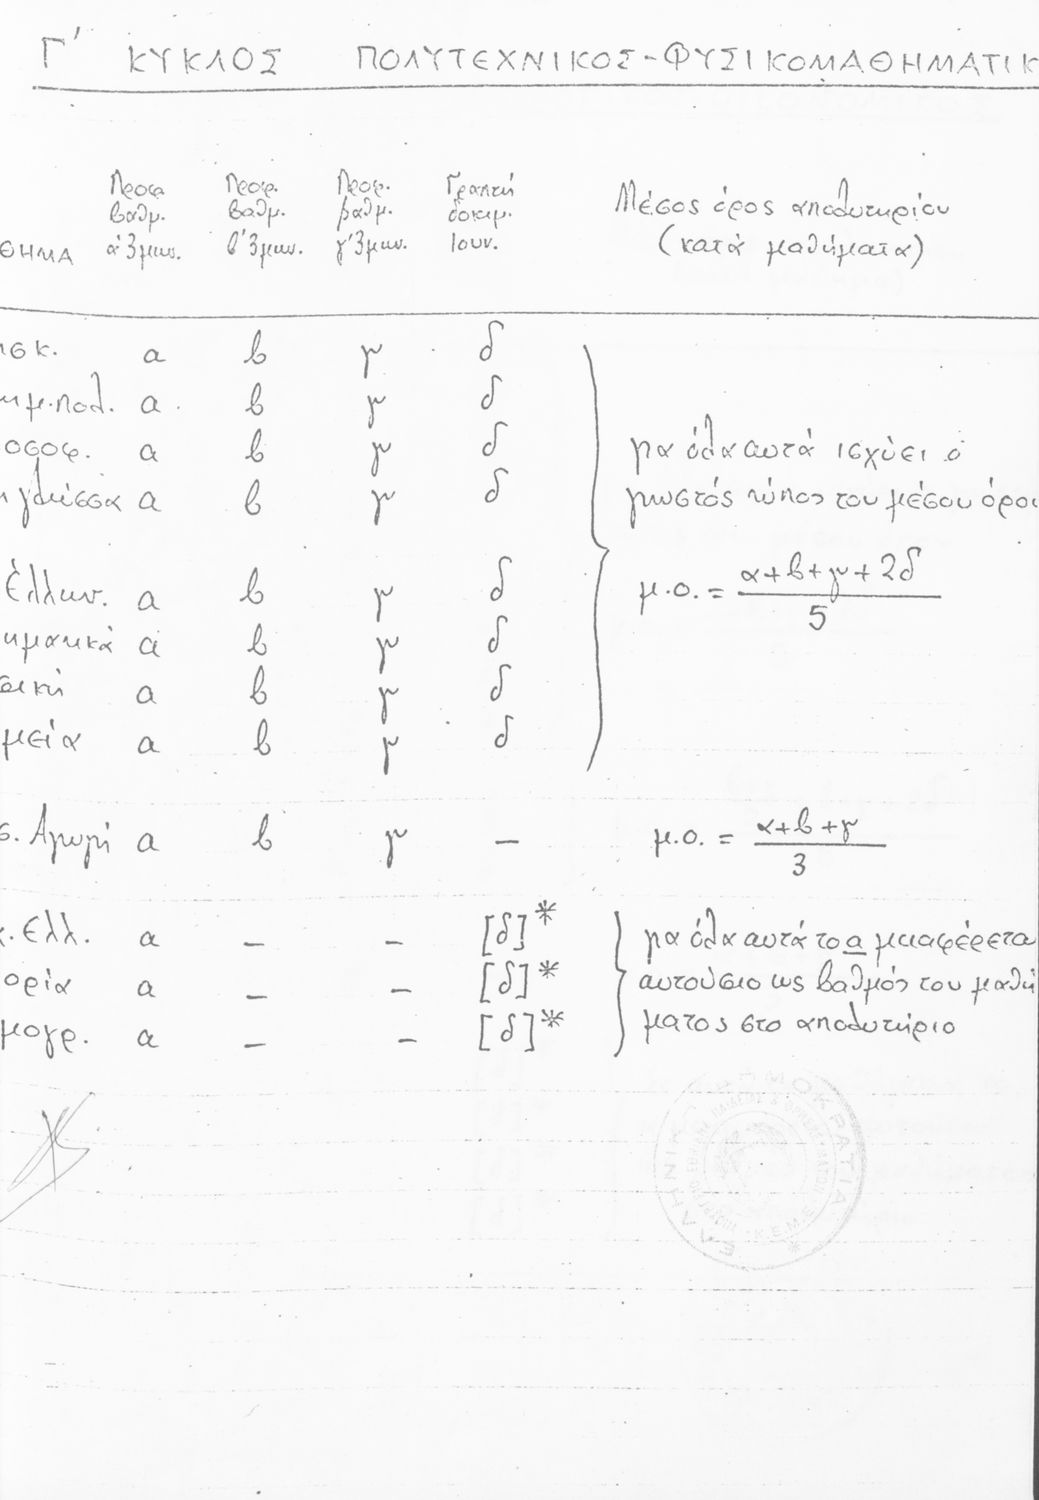 Γ' ΚΥΚΛΟΣ ΠΟΛΥΤΕΧΝΙΚΟΣ-ΦΥΣΙΚΟΜΑΘΗΜΑΤΙΚ
Προφ. Προφ. Προφ. Γραπτή
βαθμ. βαθμ. βαθμ. δοκιμ. Μέσος όρος απολυτηρίου
ΘΗΜΑ α'3μην. β'3μην. γ'3μην. Ιουν. (κατά μαθήματα)
ησκ. α β γ δ
ημ.πολ. α β γ δ
οσοφ. α β γ δ για όλα αυτά ισχύει ο
γλώσσα α β γ δ γνωστός τύπος του μέσου όρου
Έλλην. α β γ δ μ.ο. = α+β+γ+2δ
5
ηματικά α β γ δ
σική α β γ δ
μεία α β γ δ
σ. Αγωγή α β γ — μ.ο. = α+β+γ
3
χ. Ελλ. α — — [δ]* για όλα αυτά το α μεταφέρετα
ορία α — — [δ]* αυτούσιο ως βαθμός του μαθή
μογρ. α — — [δ]* ματος στο απολυτήριο
ΕΛΛΗΝΙΚΗ ΔΗΜΟΚΡΑΤΙΑ
Κ.Ε.Μ.Ε.